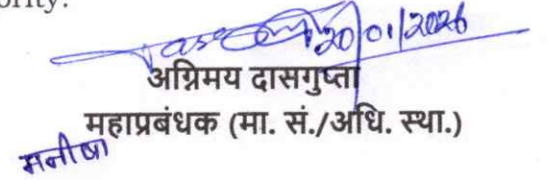 ority.
20/01/2026
अग्निमय दासगुप्ता
महाप्रबंधक (मा. सं./अधि. स्था.)
मनीषा